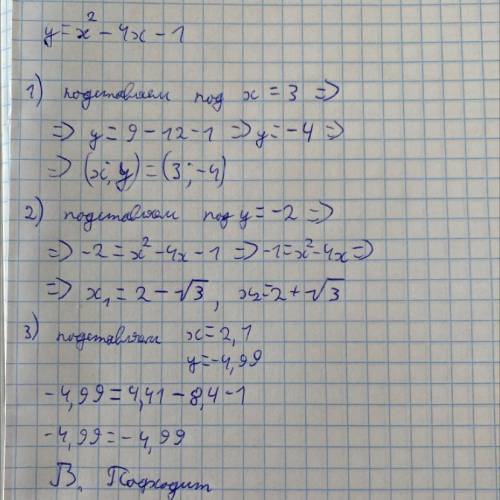 y = x² - 4x - 1
1) подставляем под x = 3 =>
=> y = 9 - 12 - 1 => y = -4 =>
=> (x; y) = (3; -4)
2) подставляем под y = -2 =>
=> -2 = x² - 4x - 1 => -1 = x² - 4x =>
=> x₁ = 2 - √3, x₂ = 2 + √3
3) подставляем x = 2,1
y = -4,99
-4,99 = 4,41 - 8,4 - 1
-4,99 = -4,99
В. Подходит